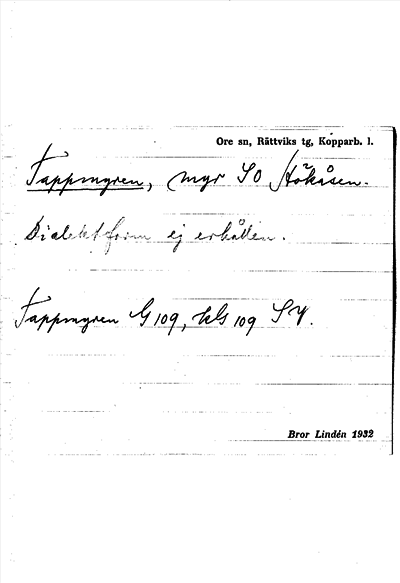 Ore sn, Rättviks tg, Kopparb. l.
Tappmyren, myr SO Hökåsen.
Dialektform ej erhållen.
Tappmyren G 109, kLG 109 SV.
Bror Lindén 1932